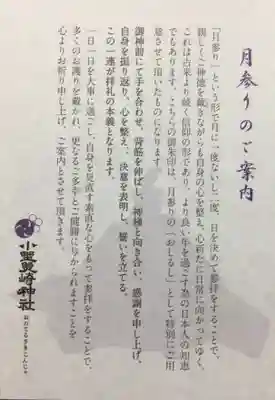 月参りのご案内
「月参り」という形で月に一度ないし二度、日を決めて参拝をすることで、
親しくご神徳を戴きながらも自身の心を整え、心新たに日常に向かってゆく、
これは古来より続く信仰の形であり、より良い年を過ごす為の日本人の知恵
でもあります。こちらの御朱印は、月参りの「おしるし」として特別にご用
意させて頂いたものになります
御神前にて手を合わせ、背筋を伸ばし、神様と向き合い、感謝を申し上げ、
自身を振り返り、心を整え、決意を表明し、誓いを立てる。
この一連が拝礼の本義となります。
一日一日を大事に過ごし、自身を見直す素直な心をもって参拝をすることで、
多くのお護りを戴かれ、更なるご多幸とご健勝に与かられますことを
心よりお祈り申し上げ、ご案内とさせて頂きます。
小野照崎神社
おのてるさきじんじゃ